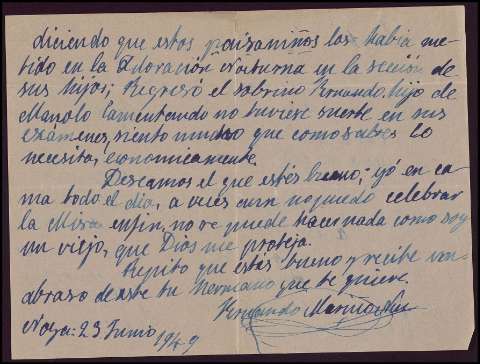 diciendo que estos paizaniños los había me-
tido en la Adoración Nocturna en la sección de
sus hijos; Regresó el sobrino Fernando hijo de
Manolo lamentando no tuviese suerte en sus
exámenes, siento mucho que como sabes lo
necesita, económicamente.
Deseamos el que estés bueno; yó en ca-
ma todo el día, a veces aun no puedo celebrar
la Misa enfin, no se puede hacer nada como soy
un viejo, que Dios me proteja.
Repito que estés bueno y recibe un
abraso de este tu hermano que te quiere.
Fernando Mariño
Noya: 23 Junio 1949